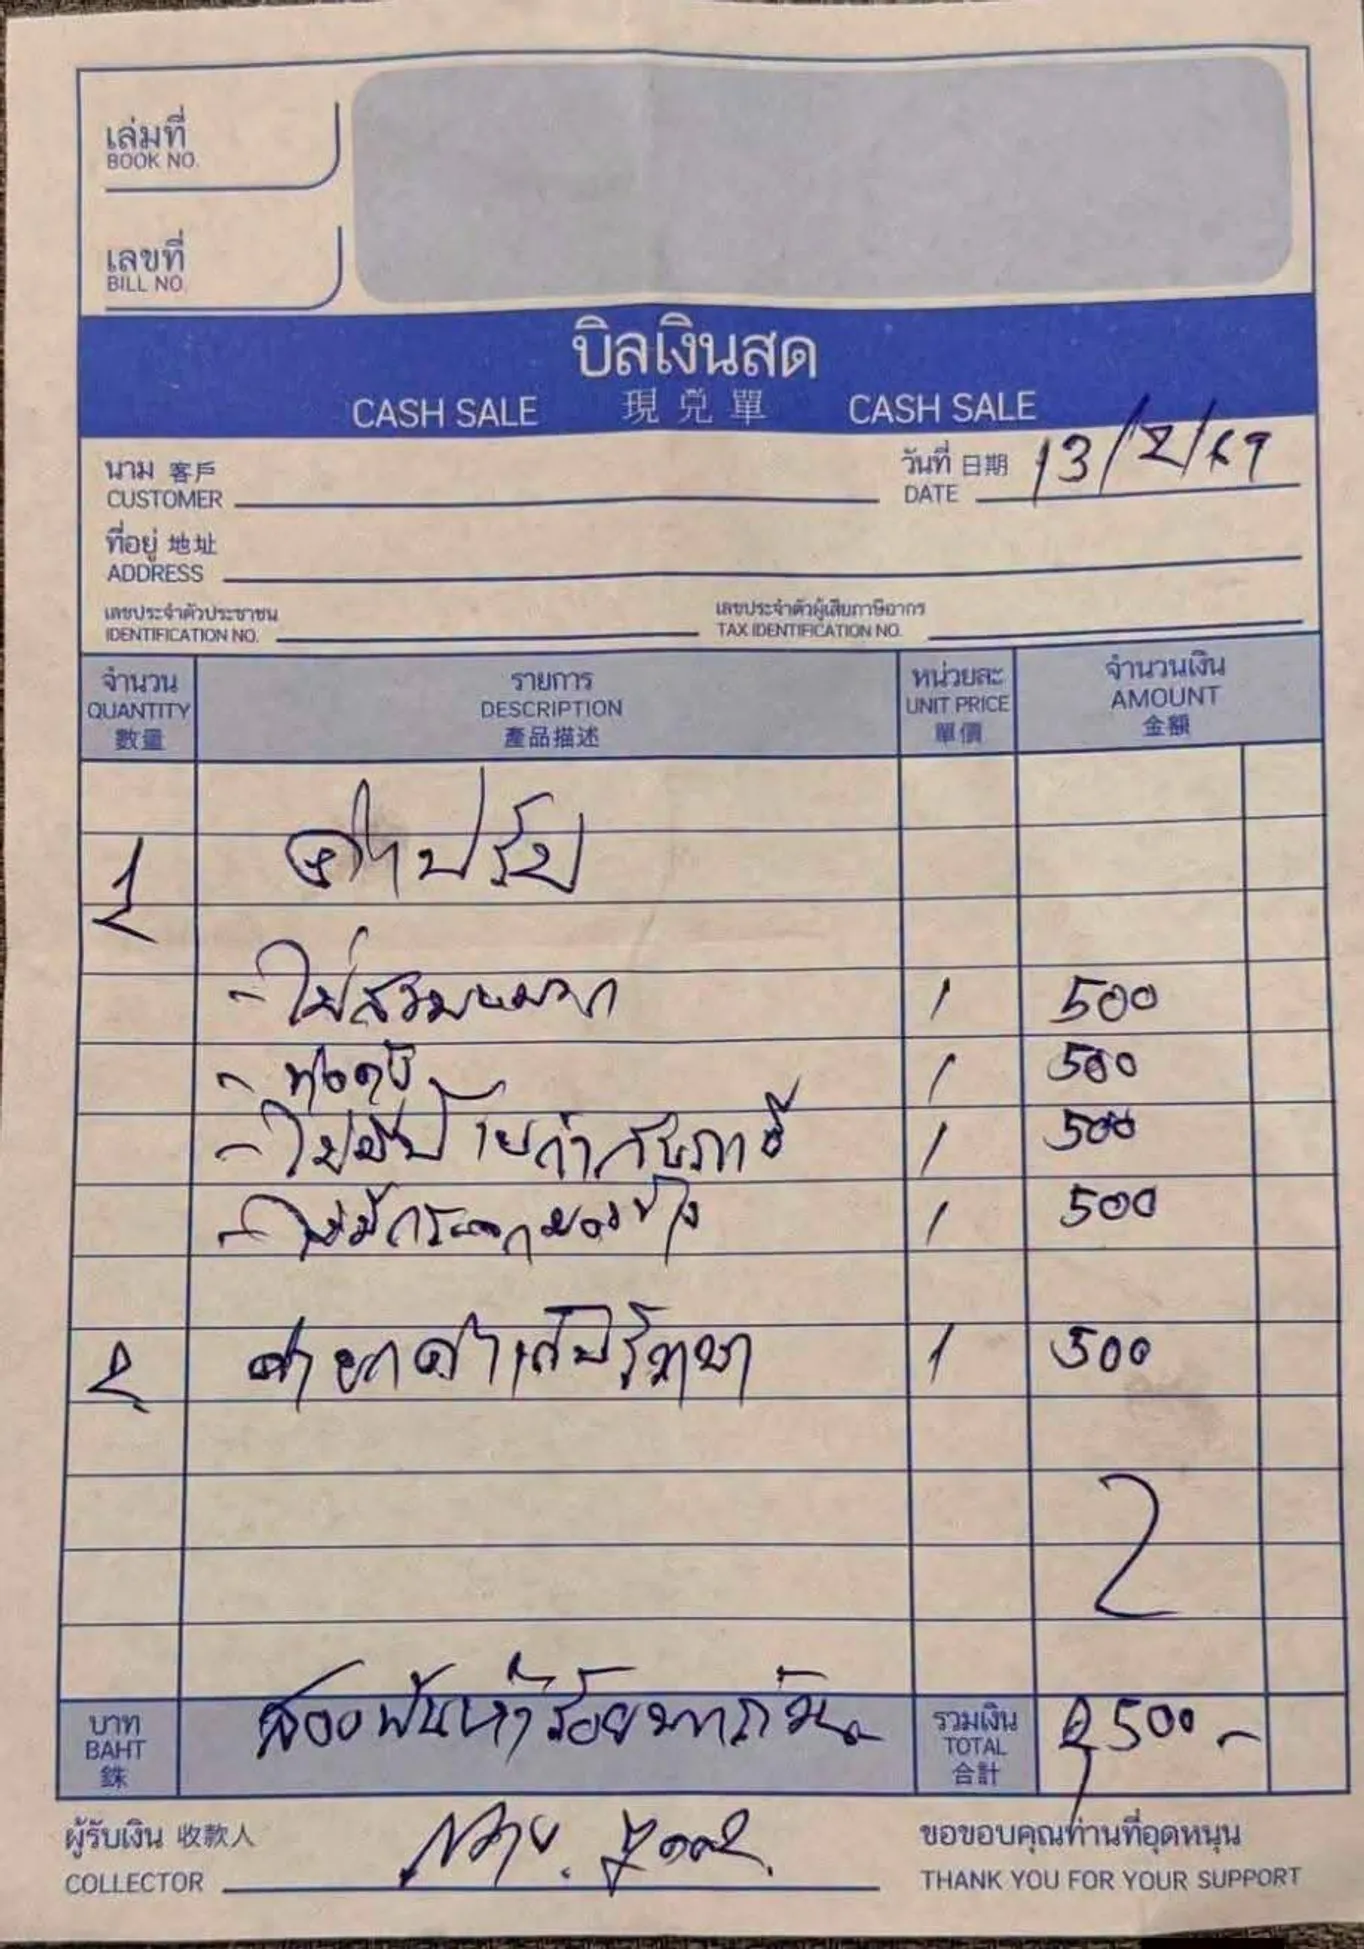 เล่มที่
BOOK NO.
เลขที่
BILL NO.
บิลเงินสด
CASH SALE 現兌單 CASH SALE
นาม 客戶
CUSTOMER
วันที่ 日期 13/2/69
DATE
ที่อยู่ 地址
ADDRESS
เลขประจำตัวประชาชน
IDENTIFICATION NO.
เลขประจำตัวผู้เสียภาษีอากร
TAX IDENTIFICATION NO.
จำนวน รายการ หน่วยละ จำนวนเงิน
QUANTITY DESCRIPTION UNIT PRICE AMOUNT
數量 產品描述 單價 金額
1 ค่าปรับ
- ไม่สวมหมวก 1 500
- ท่อดัง 1 500
- ไม่มีป้ายกำกับภาษี 1 500
- ไม่มีกระจกมองข้าง 1 500
2 1 500
2
บาท
BAHT
銖
สองพันห้าร้อยบาทถ้วน
รวมเงิน
TOTAL
合計
2,500 -
ผู้รับเงิน 收款人
COLLECTOR
ขอขอบคุณท่านที่อุดหนุน
THANK YOU FOR YOUR SUPPORT